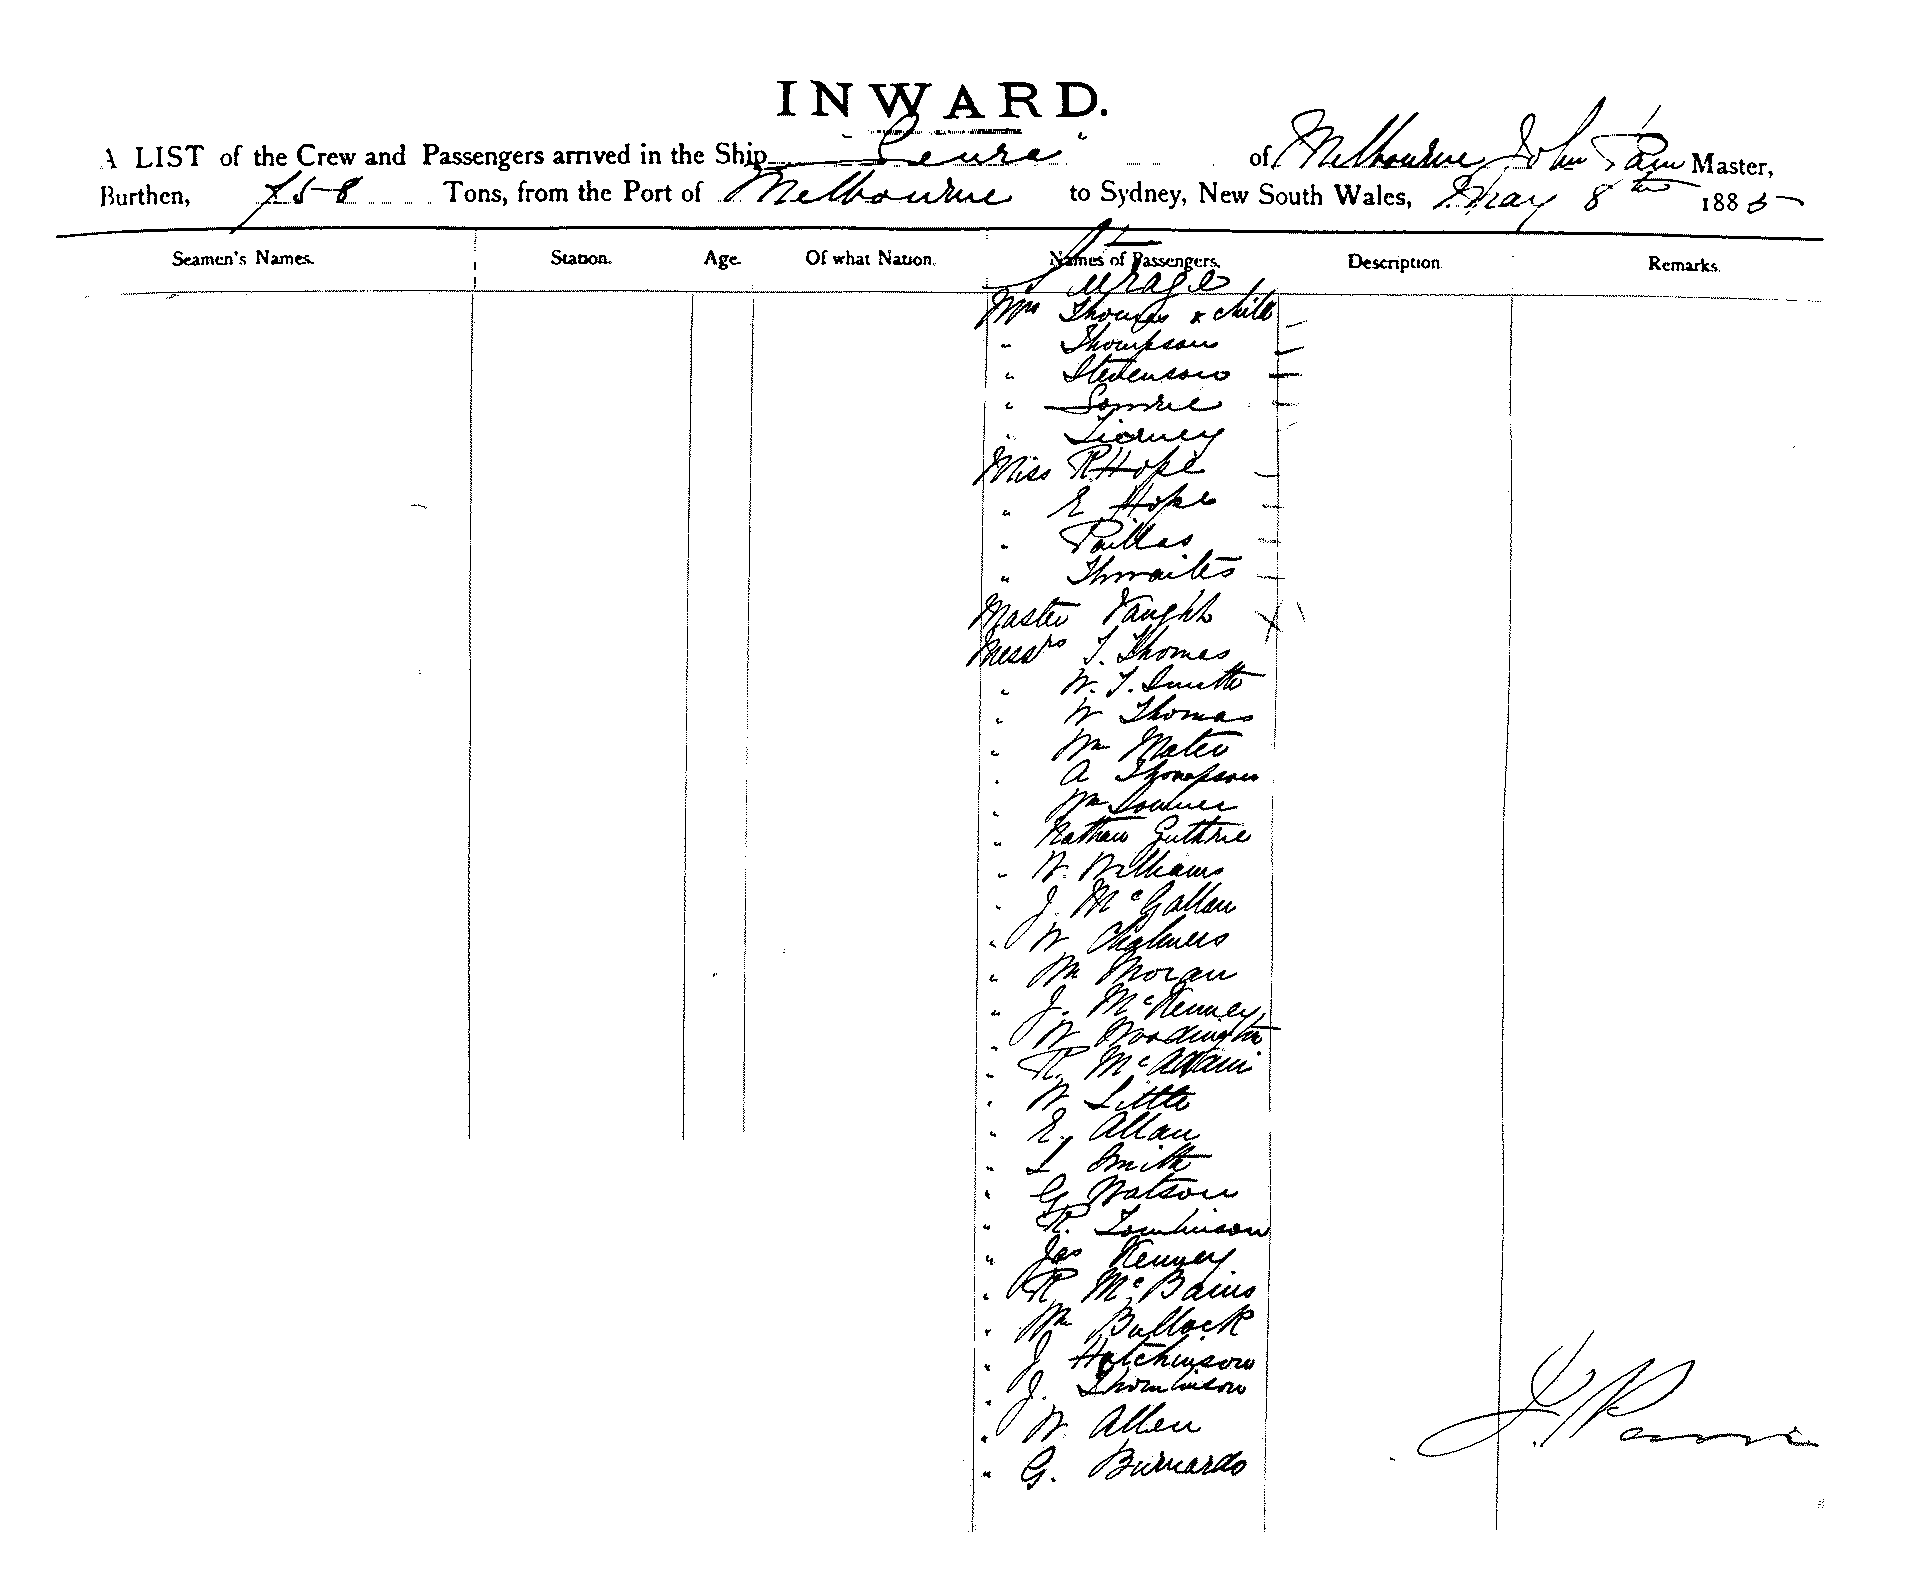 INWARD.
A LIST of the Crew and Passengers arrived in the Ship "Leura" of Melbourne, John Pain Master,
Burthen, 758 Tons, from the Port of Melbourne to Sydney, New South Wales, May 8th 1885
Seamen's Names. Station. Age. Of what Nation. Names of Passengers. Description Remarks.
Steerage
Mrs Thomas & child
" Thompson
" Stevenson
"
" Tierney
Miss R Hope
" E Hope
"
" Thwaites
Master Vaught
Messrs T. Thomas
" W. T. Smith
" W Thomas
" Wm Mater
" A Thompson
" Wm
" Nathan Guthrie
" W. Williams
" J. McGallan
" W Chalmers
" Wm Moran
" J. McKenney
" W Woodington
" R. McAdam
" W Little
" E. Allan
" L Smith
" G Watson
" R. Tomlinson
" Jas Kenney
" R McBains
" Wm Bullock
" J Hutchinson
" J. Thomlinson
" W Allen
" G. Burnardo
J. Pain